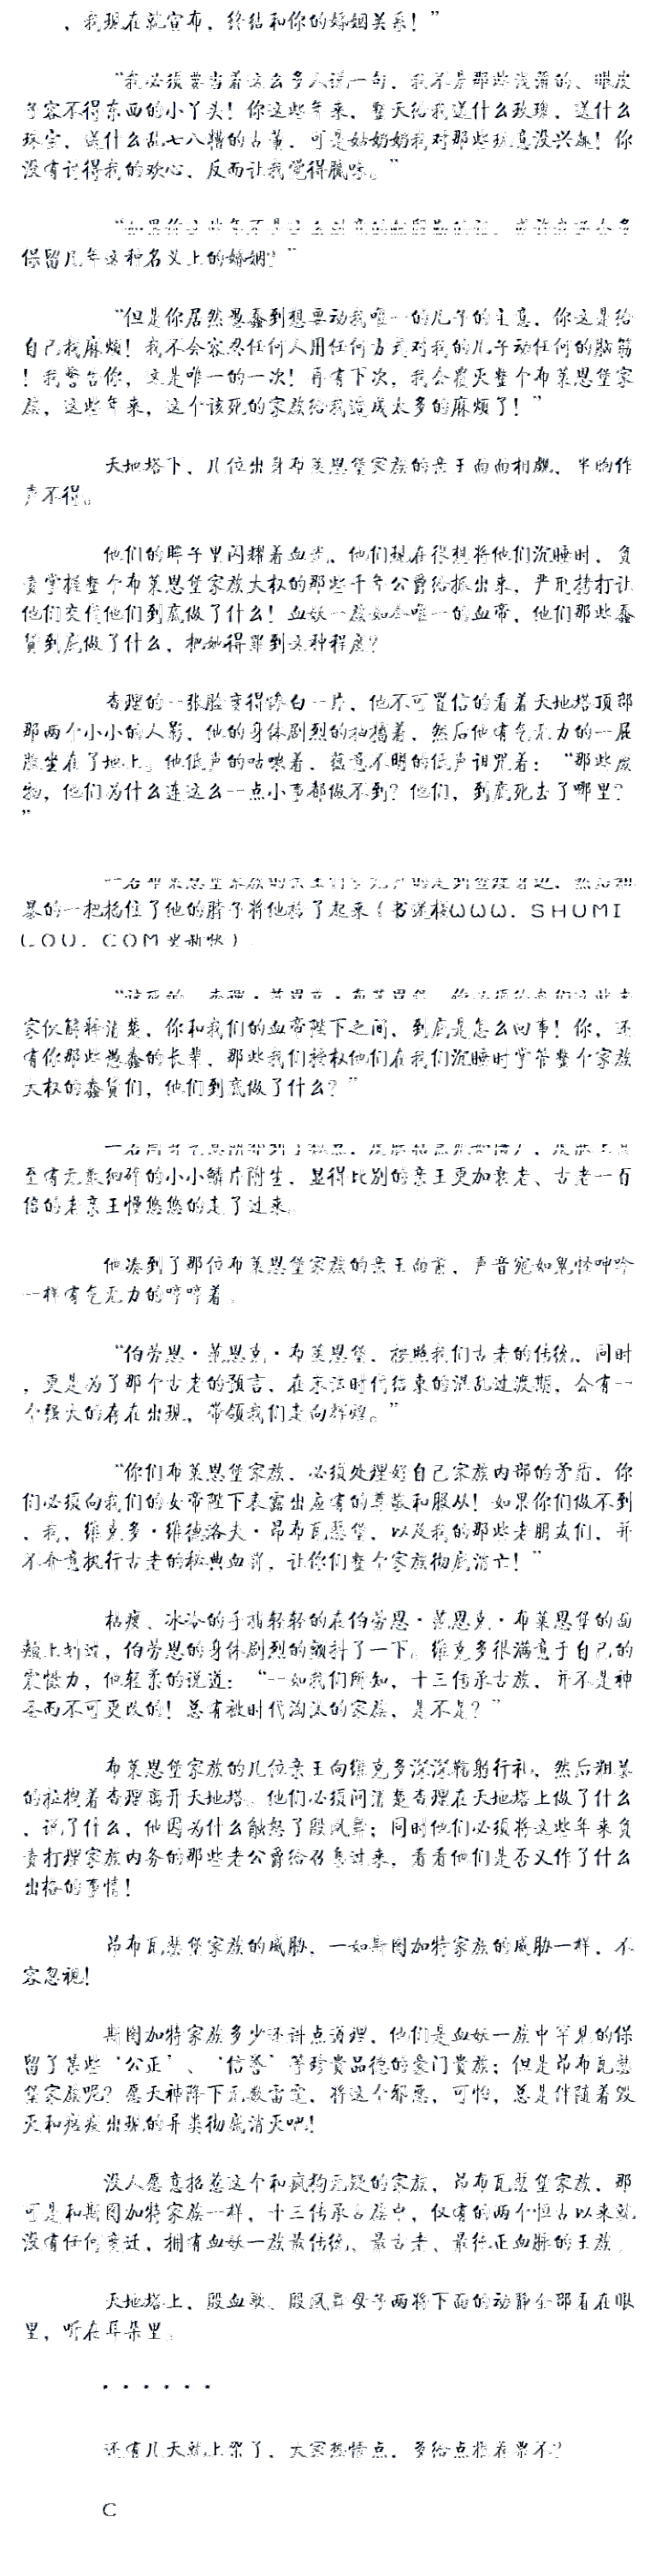 ，我现在就宣布，终结和你的婚姻关系！”
“我必须要当着这么多人说一句，我不是那些浅薄的、眼皮
子容不得东西的小丫头！你这些年来，整天给我送什么玫瑰，送什么
珠宝，送什么乱七八糟的古董，可是姑奶奶我对那些玩意没兴趣！你
没有讨得我的欢心，反而让我觉得腻味。”
保留几年这种名义上的婚姻！”
“但是你居然愚蠢到想要动我唯一的儿子的主意，你这是给
自己找麻烦！我不会容忍任何人用任何方式对我的儿子动任何的脑筋
！我警告你，这是唯一的一次！再有下次，我会覆灭整个布莱恩堡家
族，这些年来，这个该死的家族给我造成太多的麻烦了！”
天地塔下，几位出身布莱恩堡家族的亲王面面相觑，半晌作
声不得。
他们的眸子里闪耀着血光，他们现在很想将他们沉睡时，负
责掌握整个布莱恩堡家族大权的那些千年公爵给抓出来，严刑拷打让
他们交待他们到底做了什么！血妖一族如今唯一的血帝，他们那些蠢
货到底做了什么，把她得罪到这种程度？
查理的一张脸变得惨白一片，他不可置信的看着天地塔顶部
那两个小小的人影，他的身体剧烈的抽搐着，然后他有气无力的一屁
股坐在了地上。他低声的咕哝着，蕴意不明的低声诅咒着：“那些废
物，他们为什么连这么一点小事都做不到？他们，到底死去了哪里？
”
暴的一把掐住了他的脖子将他拎了起来（书迷楼WWW．SHUMI
LOU．COM更新快）
家伙解释清楚，你和我们的血帝陛下之间，到底是怎么回事！你，还
有你那些愚蠢的长辈，那些我们授权他们在我们沉睡时掌管整个家族
大权的蠢货们，他们到底做了什么？”
至有无数细碎的小小鳞片附生，显得比别的亲王更加衰老、古老一百
倍的老亲王慢悠悠的走了过来。
他凑到了那位布莱恩堡家族的亲王面前，声音宛如鬼怪呻吟
一样有气无力的哼哼着。
“伯劳恩·莱恩克·布莱恩堡，按照我们古老的传统，同时
，更是为了那个古老的预言，在末法时代结束的混乱过渡期，会有一
个强大的存在出现，带领我们走向辉煌。”
“你们布莱恩堡家族，必须处理好自己家族内部的矛盾，你
们必须向我们的女帝陛下表露出应有的尊敬和服从！如果你们做不到
，我，维克多·维德洛夫·昂布瓦慝堡，以及我的那些老朋友们，并
不介意执行古老的秘典血罚，让你们整个家族彻底消亡！”
枯瘦、冰冷的手指轻轻的在伯劳恩·莱恩克·布莱恩堡的面
颊上划过，伯劳恩的身体剧烈的颤抖了一下。维克多很满意于自己的
震慑力，他轻柔的说道：“一如我们所知，十三传承古族，并不是神
圣而不可更改的！总有被时代淘汰的家族，是不是？”
布莱恩堡家族的几位亲王向维克多深深鞠躬行礼，然后粗暴
的拉拽着查理离开天地塔。他们必须问清楚查理在天地塔上做了什么
，说了什么，他因为什么触怒了殷凤舞；同时他们必须将这些年来负
责打理家族内务的那些老公爵给召集过来，看看他们是否又作了什么
出格的事情！
昂布瓦慝堡家族的威胁，一如斯图加特家族的威胁一样，不
容忽视！
斯图加特家族多少还讲点道理，他们是血妖一族中罕见的保
留了某些‘公正’、‘信誉’等珍贵品德的豪门贵族；但是昂布瓦慝
堡家族呢？愿天神降下无数雷霆，将这个邪恶，可怕，总是伴随着毁
灭和瘟疫出现的异类彻底消灭吧！
没人愿意招惹这个和疯狗无疑的家族，昂布瓦慝堡家族，那
可是和斯图加特家族一样，十三传承古族中，仅有的两个恒古以来就
没有任何变迁，拥有血妖一族最传统、最古老、最纯正血脉的王族。
天地塔上，殷血歌、殷凤舞母子两将下面的动静全部看在眼
里，听在耳朵里。
······
还有几天就上架了，大家热情点，多给点推荐票不？
C